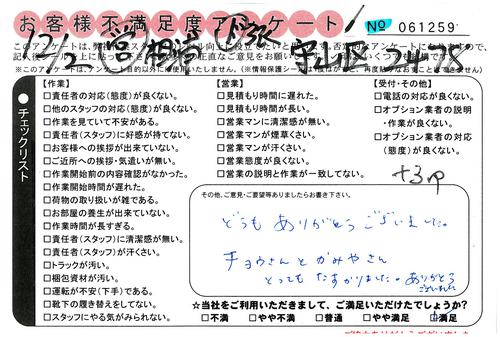 お客様不満足度アンケート
№ 061259
※このアンケートは、アンケート目的以外に使用いたしません。
チェックリスト
【作業】
□責任者の対応(態度)が良くない。
□他のスタッフの対応(態度)が良くない。
□作業を見ていて不安がある。
□責任者(スタッフ)に好感が持てない。
□お客様への挨拶が出来ていない。
□ご近所への挨拶・気遣いが無い。
□作業開始前の内容確認がなかった。
□作業開始時間が遅れた。
□荷物の取り扱いが雑である。
□お部屋の養生が出来ていない。
□作業時間が長すぎる。
□責任者(スタッフ)に清潔感が無い。
□責任者(スタッフ)が汗くさい。
□トラックが汚い。
□梱包資材が汚い。
□運転が不安(下手)である。
□靴下の履き替えをしてない。
□スタッフにやる気がみられない。
【営業】
□見積もり時間に遅れた。
□見積もり時間が長い。
□営業マンに清潔感が無い。
□営業マンが煙草くさい。
□営業マンが汗くさい。
□営業態度が良くない。
□営業の説明と作業が一致してない。
【受付・その他】
□電話の対応が良くない。
□オプション業者の説明
・作業が良くない。
□オプション業者の対応
(態度)が良くない。
その他、ご意見・ご要望等ありましたらお書き下さい。
どうもありがとうございました。
チョウさんとかみやさん
とってもたすかりました。ありがとう
ございました
☆当社をご利用いただきまして、ご満足いただけたでしょうか?
□不満 □やや不満 □普通 □やや満足 □満足